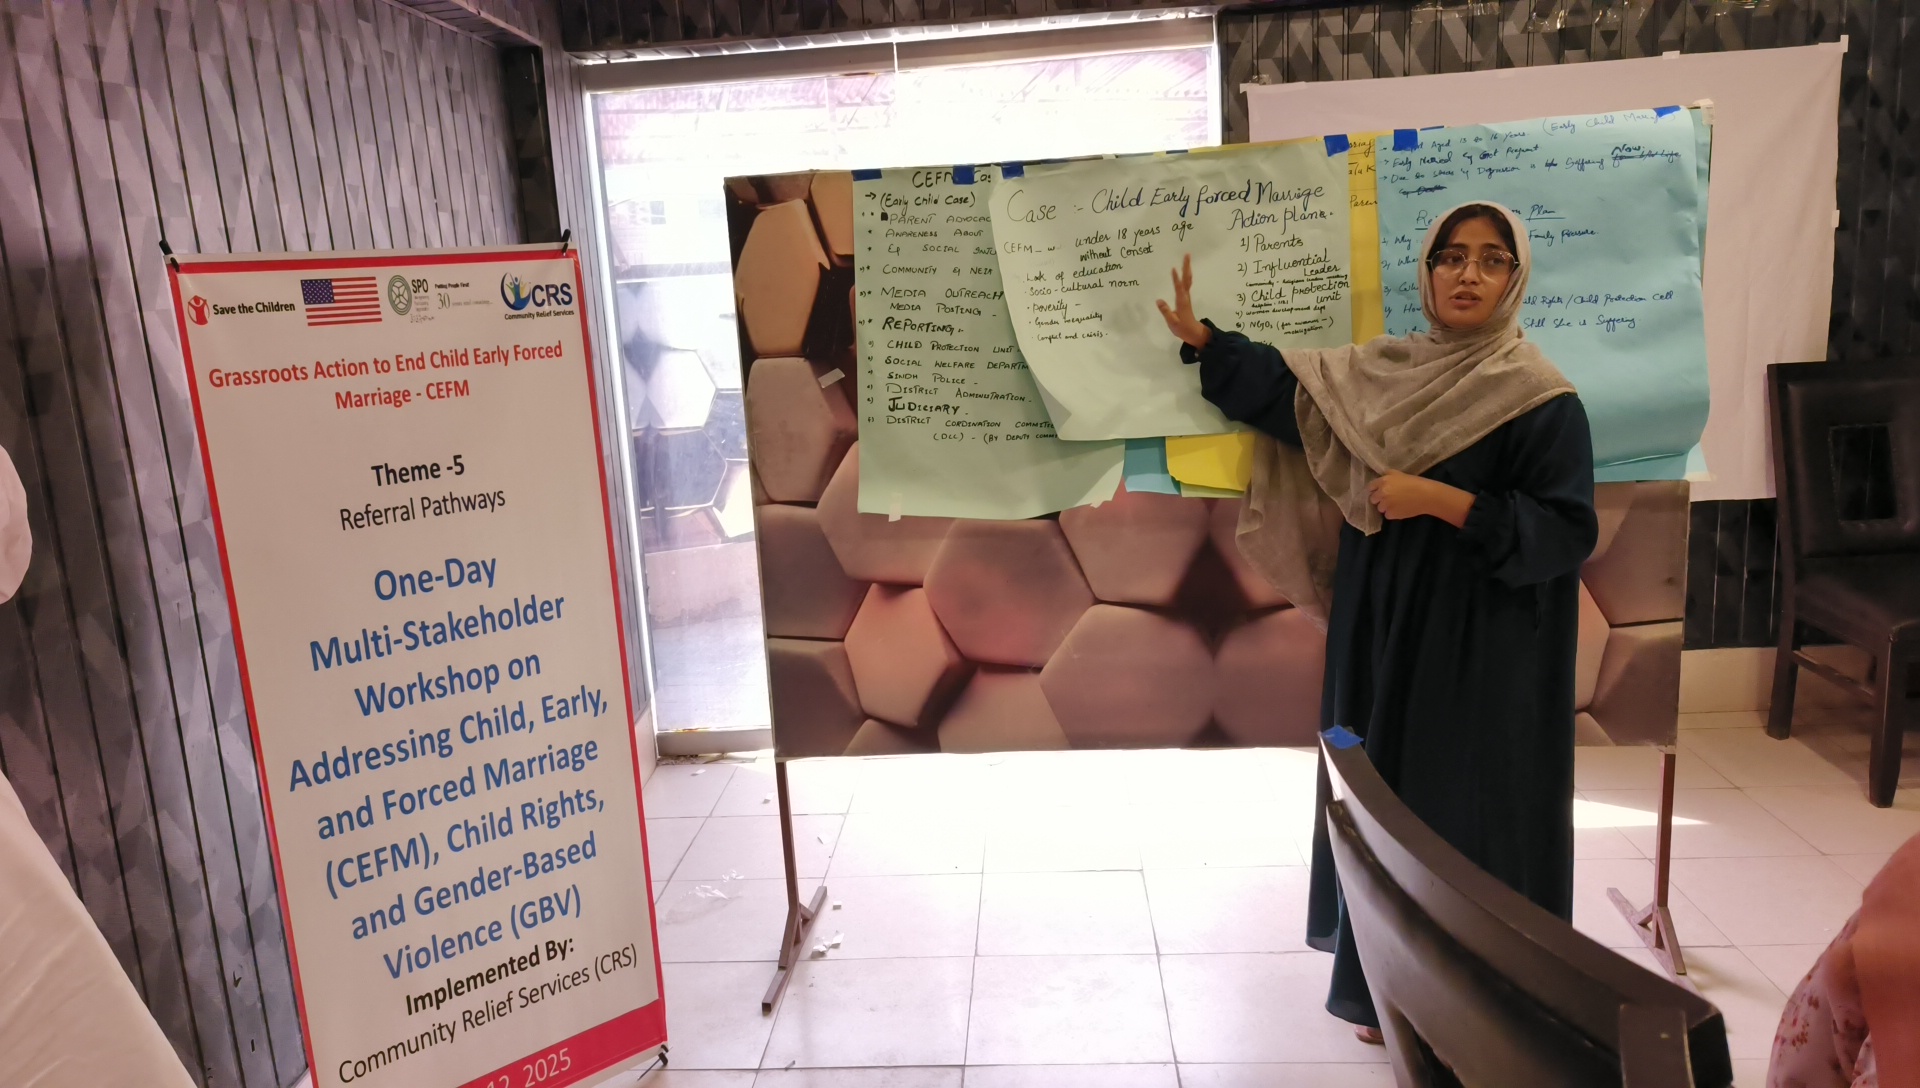 Save the Children
SPO
30
CRS
Community Relief Services
Grassroots Action to End Child Early Forced
Marriage - CEFM
Theme -5
Referral Pathways
One-Day
Multi-Stakeholder
Workshop on
Addressing Child, Early,
and Forced Marriage
(CEFM), Child Rights,
and Gender-Based
Violence (GBV)
Implemented By:
Community Relief Services (CRS)
12, 2025
CEFM
(Early Child Case)
PARENT ADVOCAC
AWARENESS ABOUT
SOCIAL
COMMUNITY
MEDIA OUTREACH
MEDIA POSTING -
REPORTING:-
CHILD PROTECTION UNIT
SOCIAL WELFARE DEPARTM
SINDH POLICE -
DISTRICT ADMINISTRATION.
JUDICIARY -
DISTRICT CORDINATION COMMITTE
(BY DEPUTY COMM
Case :- Child Early forced Marriage
Action plan:-
CEFM under 18 years age
without Conset
Lack of education
Socio-cultural norm
Poverty -
Gender inequality
Conflict and crisis -
1) Parents
2) Influential
Leader
3) Child protection
unit
4) Women development dept
NGOs
(Early Child
Aged 13 to 16 years.
Early Married Got Pregnant
Due Suffering Now.
Plan
Why
Family Pressure
Child Rights / Child Protection Cell
Still She is Suffering